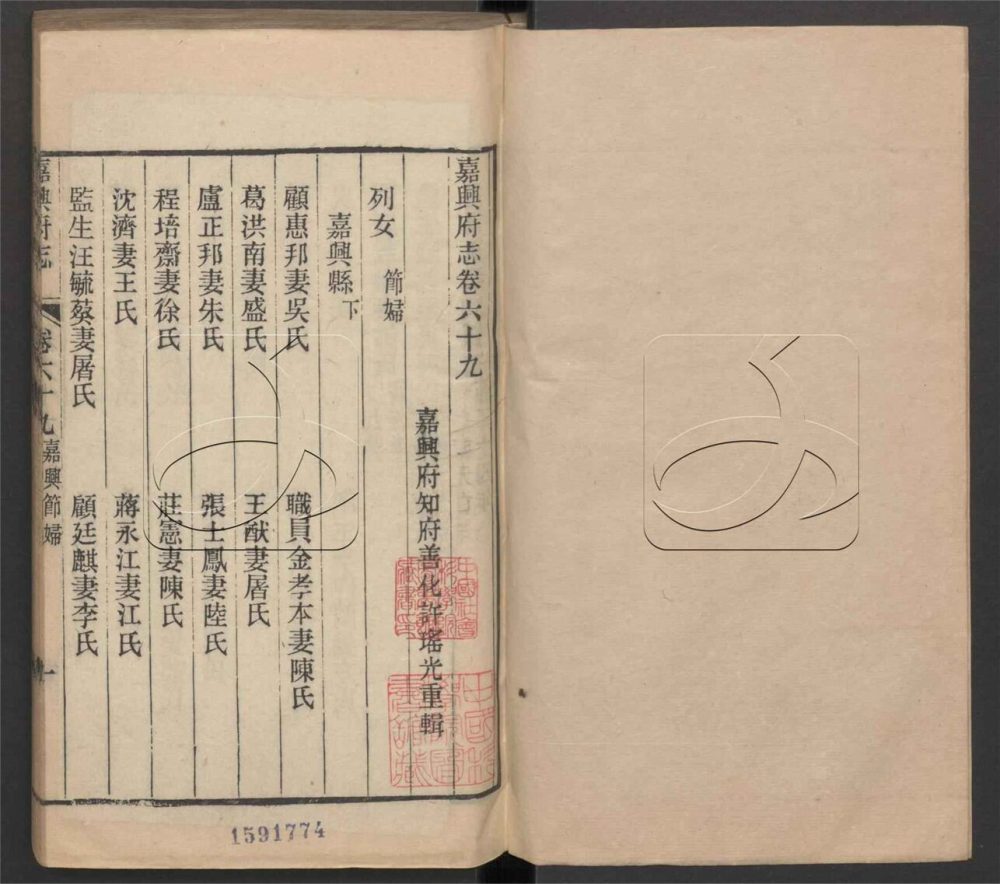 嘉興府志卷六十九
嘉興府知府善化許瑤光重輯
列女 節婦
嘉興縣下
顧惠邦妻吳氏 職員金孝本妻陳氏
葛洪南妻盛氏 王猷妻屠氏
盧正邦妻朱氏 張士鳳妻陸氏
程培齋妻徐氏 莊憲妻陳氏
沈濟妻王氏 蔣永江妻江氏
監生汪毓葵妻屠氏 顧廷麒妻李氏
嘉興府志 卷六十九 嘉興節婦 一
1591774